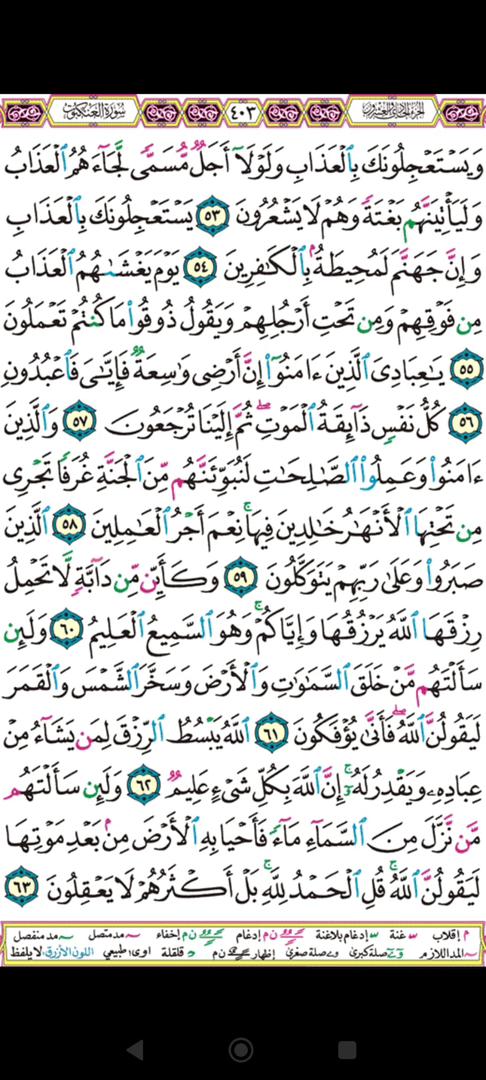 سورة العنكبوت ٤٠٣ الجزء الحادي والعشرون
وَيَسْتَعْجِلُونَكَ بِٱلْعَذَابِ وَلَوْلَآ أَجَلٌ مُّسَمًّى لَّجَآءَهُمُ ٱلْعَذَابُ
وَلَيَأْتِيَنَّهُم بَغْتَةً وَهُمْ لَا يَشْعُرُونَ ٥٣ يَسْتَعْجِلُونَكَ بِٱلْعَذَابِ
وَإِنَّ جَهَنَّمَ لَمُحِيطَةٌۢ بِٱلْكَـٰفِرِينَ ٥٤ يَوْمَ يَغْشَىٰهُمُ ٱلْعَذَابُ
مِن فَوْقِهِمْ وَمِن تَحْتِ أَرْجُلِهِمْ وَيَقُولُ ذُوقُوا۟ مَا كُنتُمْ تَعْمَلُونَ
٥٥ يَـٰعِبَادِىَ ٱلَّذِينَ ءَامَنُوٓا۟ إِنَّ أَرْضِى وَٰسِعَةٌ فَإِيَّـٰىَ فَٱعْبُدُونِ
٥٦ كُلُّ نَفْسٍ ذَآئِقَةُ ٱلْمَوْتِ ۖ ثُمَّ إِلَيْنَا تُرْجَعُونَ ٥٧ وَٱلَّذِينَ
ءَامَنُوا۟ وَعَمِلُوا۟ ٱلصَّـٰلِحَـٰتِ لَنُبَوِّئَنَّهُم مِّنَ ٱلْجَنَّةِ غُرَفًا تَجْرِى
مِن تَحْتِهَا ٱلْأَنْهَـٰرُ خَـٰلِدِينَ فِيهَا ۚ نِعْمَ أَجْرُ ٱلْعَـٰمِلِينَ ٥٨ ٱلَّذِينَ
صَبَرُوا۟ وَعَلَىٰ رَبِّهِمْ يَتَوَكَّلُونَ ٥٩ وَكَأَيِّن مِّن دَآبَّةٍ لَّا تَحْمِلُ
رِزْقَهَا ٱللَّهُ يَرْزُقُهَا وَإِيَّاكُمْ ۚ وَهُوَ ٱلسَّمِيعُ ٱلْعَلِيمُ ٦٠ وَلَئِن
سَأَلْتَهُم مَّنْ خَلَقَ ٱلسَّمَـٰوَٰتِ وَٱلْأَرْضَ وَسَخَّرَ ٱلشَّمْسَ وَٱلْقَمَرَ
لَيَقُولُنَّ ٱللَّهُ ۖ فَأَنَّىٰ يُؤْفَكُونَ ٦١ ٱللَّهُ يَبْسُطُ ٱلرِّزْقَ لِمَن يَشَآءُ مِنْ
عِبَادِهِۦ وَيَقْدِرُ لَهُۥٓ ۚ إِنَّ ٱللَّهَ بِكُلِّ شَىْءٍ عَلِيمٌ ٦٢ وَلَئِن سَأَلْتَهُم
مَّن نَّزَّلَ مِنَ ٱلسَّمَآءِ مَآءً فَأَحْيَا بِهِ ٱلْأَرْضَ مِنۢ بَعْدِ مَوْتِهَا
لَيَقُولُنَّ ٱللَّهُ ۚ قُلِ ٱلْحَمْدُ لِلَّهِ ۚ بَلْ أَكْثَرُهُمْ لَا يَعْقِلُونَ ٦٣
م إقلاب غنة إدغام بلاغنة ن م إدغام ن م إخفاء مد متصل مد منفصل
المد اللازم صلة كبرى صلة صغرى إظهار ن م قلقلة اوى طبيعي اللون الأزرق: لا يلفظ